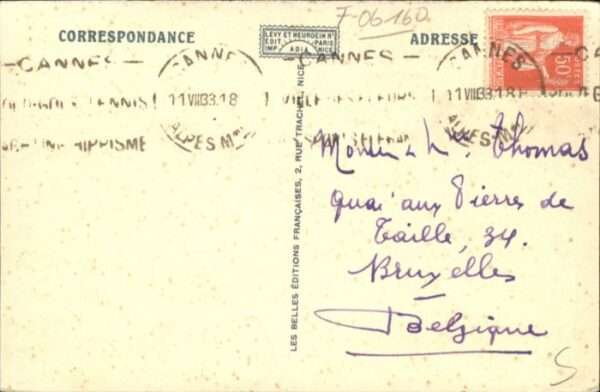 F-06160
CORRESPONDANCE
LEVY ET NEURDEIN Rs
EDIT. PARIS
IMP. ADIA NICE
ADRESSE
CANNES
CANNES
CANNES
CANNES
50c
TENNIS
11 VIII 33. 18
VILLE DES FLEURS
11 VIII 33. 18
HIPPISME
ALPES Mmes
ALPES Mmes
LES BELLES ÉDITIONS FRANÇAISES, 2, RUE TRACHEL, NICE
Thomas
Quai aux Pierres de
Taille, 34.
Bruxelles
Belgique
S